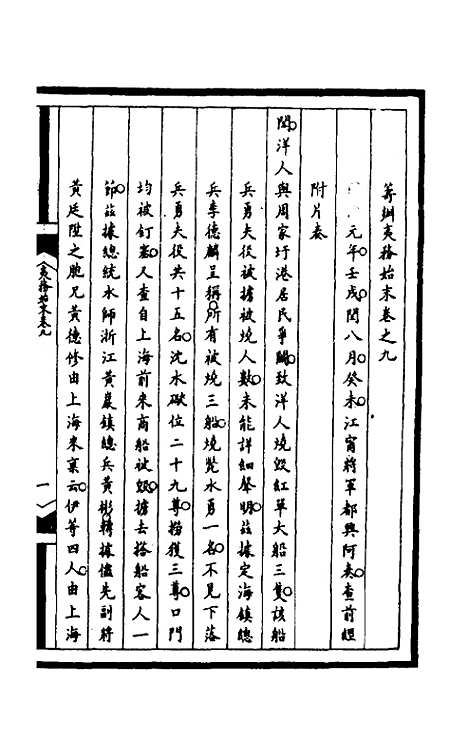 籌辦夷務始末卷之九
元年壬戌閏八月癸未江甯將軍都興阿奏查前經
附片奏
聞洋人與周家圩港居民爭鬭致洋人燒毀紅單大船三隻該船
兵勇夫役被擄被燒人數未能詳細聲明茲據定海鎮總
兵李德麟呈稱所有被燒三船燒斃水勇一名不見下落
兵勇夫役共十五名沈水礮位二十九尊撈獲三尊口門
均被釘塞又查自上海前來商船被燬擄去搭船客人一
節茲據總統水師浙江黃巖鎮總兵黃彬轉據儘先副將
黃廷陞之胞兄黃德修由上海來稟云伊等四人由上海
夷務始末卷九
一